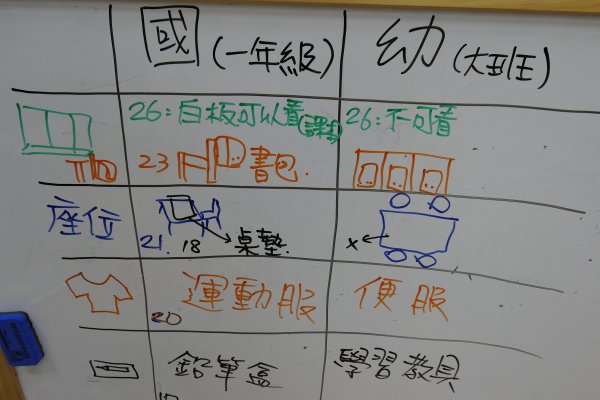 國(一年級) 幼(大班)
26:白板可以看(課本) 26:不可看
23 書包.
座位 21. 18 桌墊. x
運動服 便服
20
鉛筆盒 學習教具